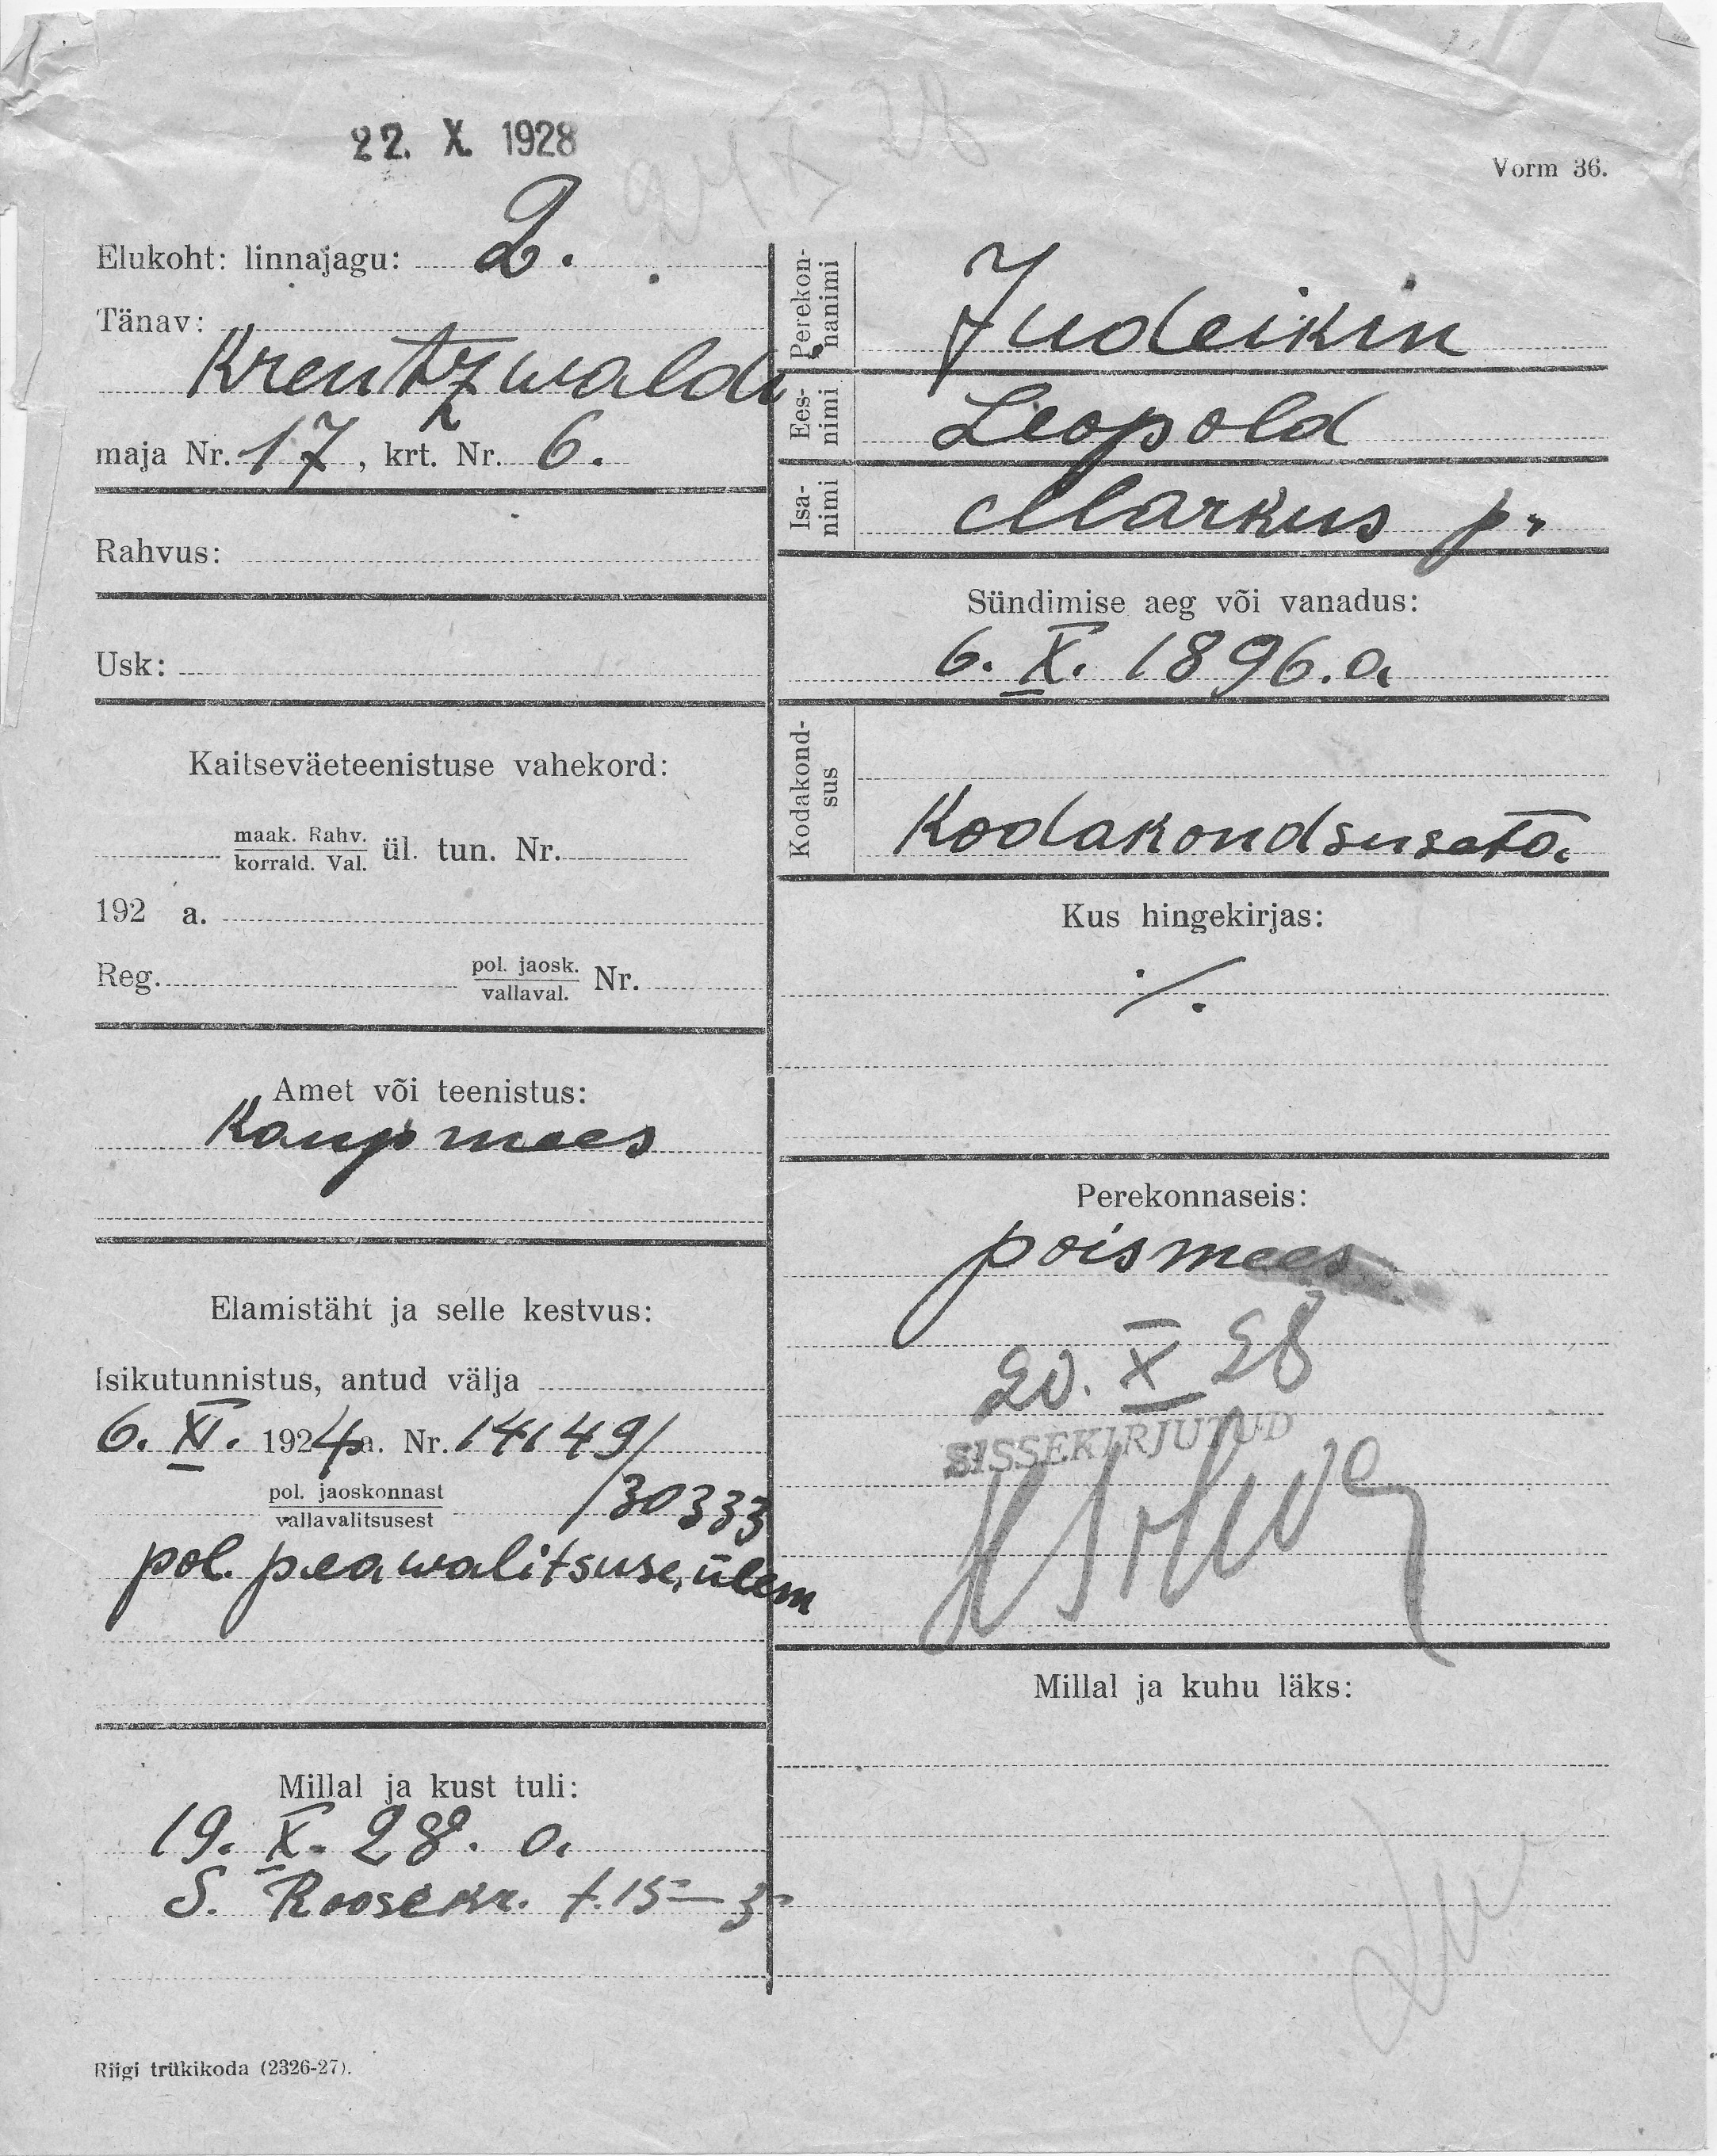 22. X. 1928
Vorm 36.
Elukoht: linnajagu: 2.
Tänav:
Kreutzwaldi
maja Nr. 17, krt. Nr. 6.
Rahvus:
Usk:
Kaitseväeteenistuse vahekord:
maak. Rahv.
korrald. Val.
ül. tun. Nr.
192 a.
Reg. pol. jaosk. Nr.
vallaval.
Amet või teenistus:
Kaupmees
Elamistäht ja selle kestvus:
Isikutunnistus, antud välja
6. XI. 1924 a. Nr. 14149/
pol. jaoskonnast
vallavalitsusest
/30333
pol. peawalitsuse, ülem
Millal ja kust tuli:
19. X. 28. a.
S. Roosekr. t. 15-3
Riigi trükikoda (2326-27).
Perekon-
nanimi
Judeikin
Ees-
nimi
Leopold
Isa-
nimi
Markus p.
Sündimise aeg või vanadus:
6. X. 1896. a.
Kodakond-
sus
Kodakondsuseta.
Kus hingekirjas:
./.
Perekonnaseis:
poismees
20. X 28
SISSEKIRJUTUD
Millal ja kuhu läks: